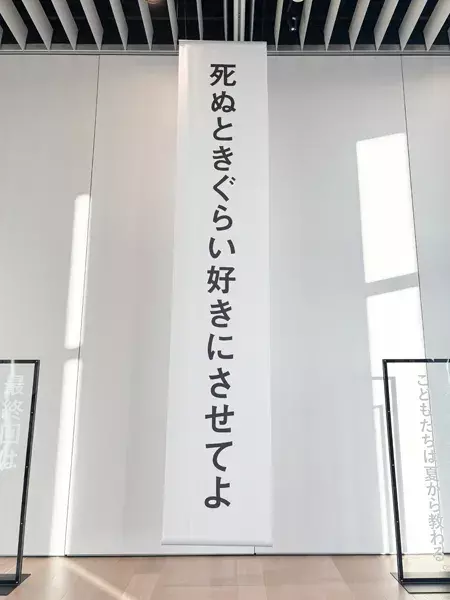 死ぬときぐらい好きにさせてよ
最終回は
こどもたちは夏から教わる。